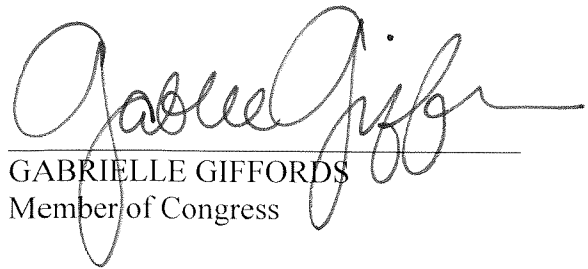 Gabrielle Giffords
GABRIELLE GIFFORDS
Member of Congress